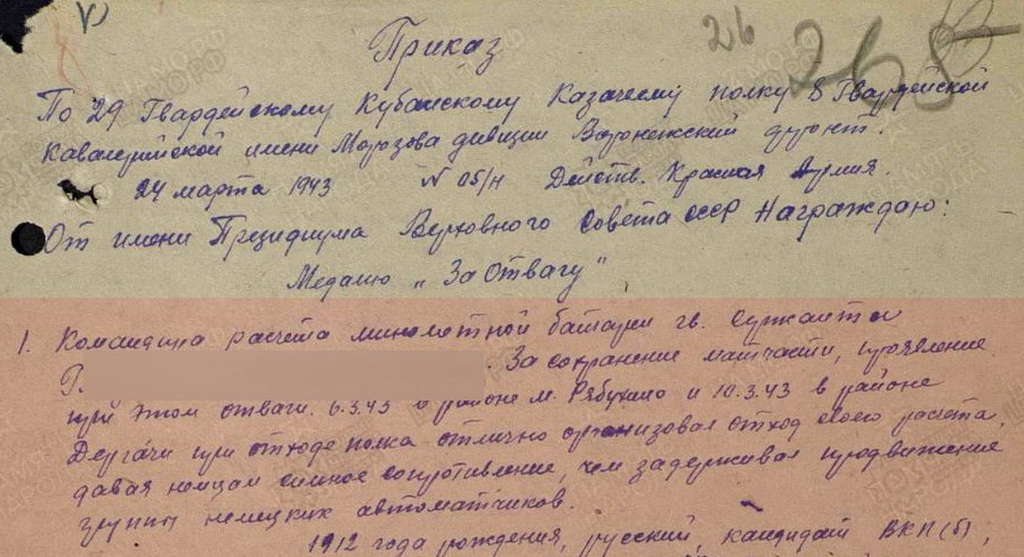 26 268
Приказ
По 29 Гвардейскому Кубанскому Казачему полку 8 Гвардейской
Кавалерийской имени Морозова дивизии Воронежский фронт.
24 марта 1943 N 05/н Действ. Красная Армия.
От имени Президиума Верховного Совета СССР Награждаю:
Медалью „За Отвагу"
1. Командира расчета минометной батареи гв. Сержанта
Г. . За сохранение матчасти, проявление
при этом отваги. 6.3.43 в районе м. Рябухино и 10.3.43 в районе
Дергачи при отходе полка отлично организовал отход своего расчета,
давая немцам сильное сопротивление, чем задерживал продвижение
группы немецких автоматчиков.
1912 года рождения, русский, кандидат ВКП(б),